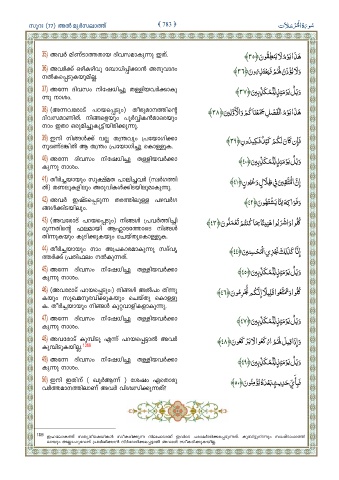 സൂറ: (77) അൽ മുർസലാത്ത് ﴾ 783 ﴿ سُورَةُ الْمُرْسَلَاتِ
35) അവർ മിണ്ടാത്തതായ ദിവസമാകുന്നു ഇത്.
هَٰذَا يَوْمُ لَا يَنْطِقُونَ ﴿٣٥﴾
36) അവർക്ക് ഒഴികഴിവു ബോധിപ്പിക്കാൻ അനുവാദം
നൽകപ്പെടുകയുമില്ല.
وَلَا يُؤْذَنُ لَهُمْ فَيَعْتَذِرُونَ ﴿٣٦﴾
37) അന്നേ ദിവസം നിഷേധിച്ചു തള്ളിയവർക്കാകു
ന്നു നാശം.
وَيْلٌ يَوْمَئِذٍ لِلْمُكَذِّبِينَ ﴿٣٧﴾
38) (അന്നവരോട് പറയപ്പെടും) തീരുമാനത്തിന്റെ
ദിവസമാണിത്. നിങ്ങളെയും പൂർവ്വികൻമാരെയും
നാം ഇതാ ഒരുമിച്ചുകൂട്ടിയിരിക്കുന്നു.
هَٰذَا يَوْمُ الْفَصْلِ جَمَعْنَاكُمْ وَالْأَوَّلِينَ ﴿٣٨﴾
39) ഇനി നിങ്ങൾക്ക് വല്ല തന്ത്രവും പ്രയോഗിക്കാ
നുണ്ടെങ്കിൽ ആ തന്ത്രം പ്രയോഗിച്ചു കൊള്ളുക.
فَإِنْ كَانَ لَكُمْ كَيْدٌ فَكِيدُونِ ﴿٣٩﴾
40) അന്നേ ദിവസം നിഷേധിച്ചു തള്ളിയവർക്കാ
കുന്നു നാശം.
وَيْلٌ يَوْمَئِذٍ لِلْمُكَذِّبِينَ ﴿٤٠﴾
41) തീർച്ചയായും സൂക്ഷ്മത പാലിച്ചവർ (സ്വർഗത്തി
ൽ) തണലുകളിലും അരുവികൾക്കിടയിലുമാകുന്നു.
إِنَّ الْمُتَّقِينَ فِي ظِلَالٍ وَعُيُونٍ ﴿٤١﴾
42) അവർ ഇഷ്ടപ്പെടുന്ന തരത്തിലുള്ള പഴവർഗ
ങ്ങൾക്കിടയിലും.
وَفَوَاكِهَ مِمَّا يَشْتَهُونَ ﴿٤٢﴾
43) (അവരോട് പറയപ്പെടും) നിങ്ങൾ പ്രവർത്തിച്ചി
രുന്നതിന്റെ ഫലമായി ആഹ്ലാദത്തോടെ നിങ്ങൾ
തിന്നുകയും കുടിക്കുകയും ചെയ്തുകൊള്ളുക.
كُلُوا وَاشْرَبُوا هَنِيئًا بِمَا كُنْتُمْ تَعْمَلُونَ ﴿٤٣﴾
44) തീർച്ചയായും നാം അപ്രകാരമാകുന്നു സദ്‌വൃ
ത്തർക്ക് പ്രതിഫലം നൽകുന്നത്.
إِنَّا كَذَٰلِكَ نَجْزِي الْمُحْسِنِينَ ﴿٤٤﴾
45) അന്നേ ദിവസം നിഷേധിച്ചു തള്ളിയവർക്കാ
കുന്നു നാശം.
وَيْلٌ يَوْمَئِذٍ لِلْمُكَذِّبِينَ ﴿٤٥﴾
46) (അവരോട് പറയപ്പെടും:) നിങ്ങൾ അൽപം തിന്നു
കയും സുഖമനുഭവിക്കുകയും ചെയ്തു കൊള്ളു
ക. തീർച്ചയായും നിങ്ങൾ കുറ്റവാളികളാകുന്നു.
كُلُوا وَتَمَتَّعُوا قَلِيلًا إِنَّكُمْ مُجْرِمُونَ ﴿٤٦﴾
47) അന്നേ ദിവസം നിഷേധിച്ചു തള്ളിയവർക്കാ
കുന്നു നാശം.
وَيْلٌ يَوْمَئِذٍ لِلْمُكَذِّبِينَ ﴿٤٧﴾
48) അവരോട് കുമ്പിടൂ എന്ന് പറയപ്പെട്ടാൽ അവർ
കുമ്പിടുകയില്ല.
وَإِذَا قِيلَ لَهُمُ ارْكَعُوا لَا يَرْكَعُونَ ﴿٤٨﴾
49) അന്നേ ദിവസം നിഷേധിച്ചു തള്ളിയവർക്കാ
കുന്നു നാശം.
وَيْلٌ يَوْمَئِذٍ لِلْمُكَذِّبِينَ ﴿٤٩﴾
50) ഇനി ഇതിന് ( ഖുർആന്ന് ) ശേഷം ഏതൊരു
വർത്തമാനത്തിലാണ് അവർ വിശ്വസിക്കുന്നത്?
فَبِأَيِّ حَدِيثٍ بَعْدَهُ يُؤْمِنُونَ ﴿٥٠﴾